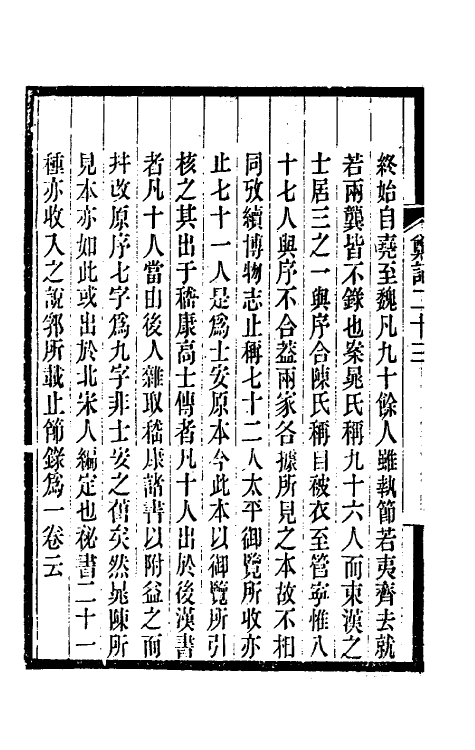 終始自堯至魏凡九十餘人雖執節若夷齊去就
若兩龔皆不錄也案晁氏稱九十六人而東漢之
士居三之一與序合陳氏稱自被衣至管寧惟八
十七人與序不合蓋兩家各據所見之本故不相
同攷續博物志止稱七十二人太平御覽所收亦
止七十一人是爲士安原本今此本以御覽所引
核之其出于嵇康高士傳者凡十人出於後漢書
者凡十人當由後人雜取嵇康諸書以附益之而
幷改原序七字爲九字非士安之舊矣然晁陳所
見本亦如此或出於北宋人編定也祕書二十一
種亦收入之說郛所載止節錄爲一卷云
鄭記二十三